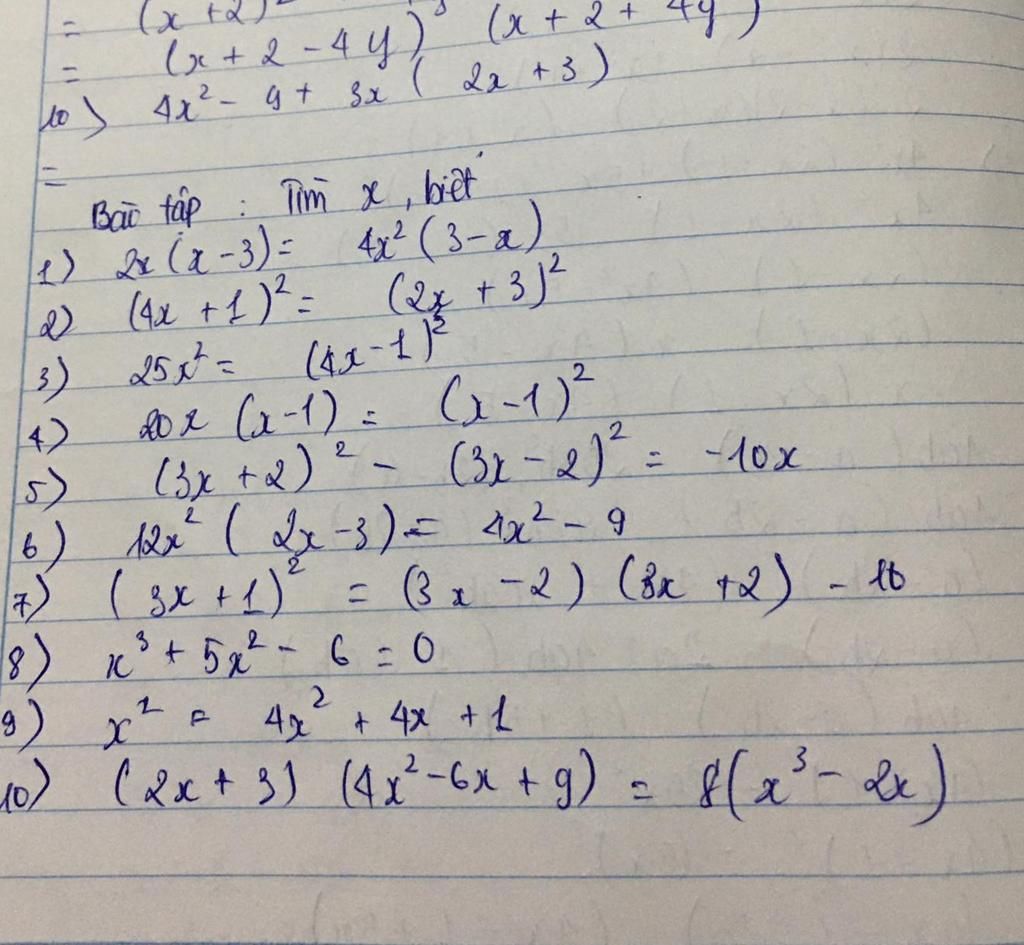 = (x + 2)²
= (x + 2 - 4y) (x + 2 + 4y)
10) 4x² - 9 + 3x ( 2x + 3 )
=
Bài tập : Tìm x, biết
1) 2x (x - 3) = 4x² (3 - x)
2) (4x + 1)² = (2x + 3)²
3) 25x² = (4x - 1)²
4) 20x (x - 1) = (x - 1)²
5) (3x + 2)² - (3x - 2)² = -10x
6) 12x² ( 2x - 3) = 4x² - 9
7) ( 3x + 1)² = (3x - 2) (3x + 2) - 16
8) x³ + 5x² - 6 = 0
9) x² = 4x² + 4x + 1
10) (2x + 3) (4x² - 6x + 9) = 8(x³ - 2x)